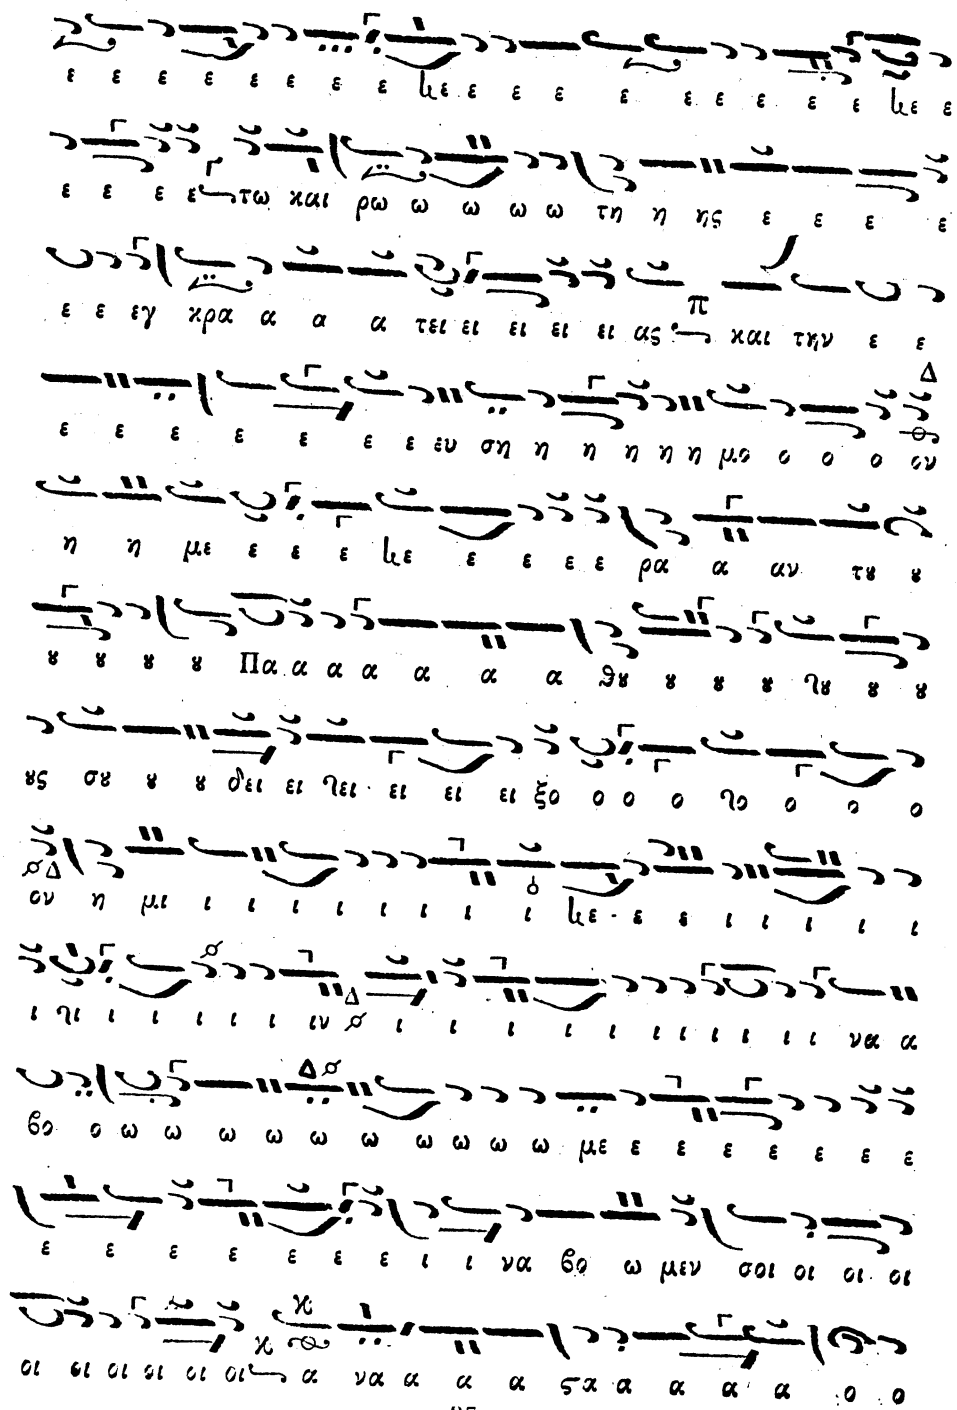 ε ε ε ε ε ε ε ε κε ε ε ε ε ε ε ε ε ε κε ε
ε ε ε ε τω και ρω ω ω ω ω τη η ης ε ε ε ε
ε ε εγ κρα α α α τει ει ει ει ει ας και την ε ε
ε ε ε ε ε ε ε ευ ση η η η η η μο ο ο ο ον
η η με ε ε ε κε ε ε ε ε ρα α αν τȣ ȣ
ȣ ȣ ȣ ȣ Πα α α α α α α ϑȣ ȣ ȣ ȣ τȣ ȣ ȣ
ȣς σȣ ȣ ȣ δει ει τει ει ει ει ξο ο ο ο το ο ο ο
ον η μι ι ι ι ι ι ι ι ι κε ε ε ι ι ι ι ι
ι τι ι ι ι ι ι ιν ι ι ι ι ι ι ι ι ι ι ι να α
βο ο ω ω ω ω ω ω ω ω ω ω με ε ε ε ε ε ε ε
ε ε ε ε ε ε ε ι ι να βο ω μεν σοι οι οι οι
οι οι οι οι οι οι α να α α α ϛα α α α α ο ο